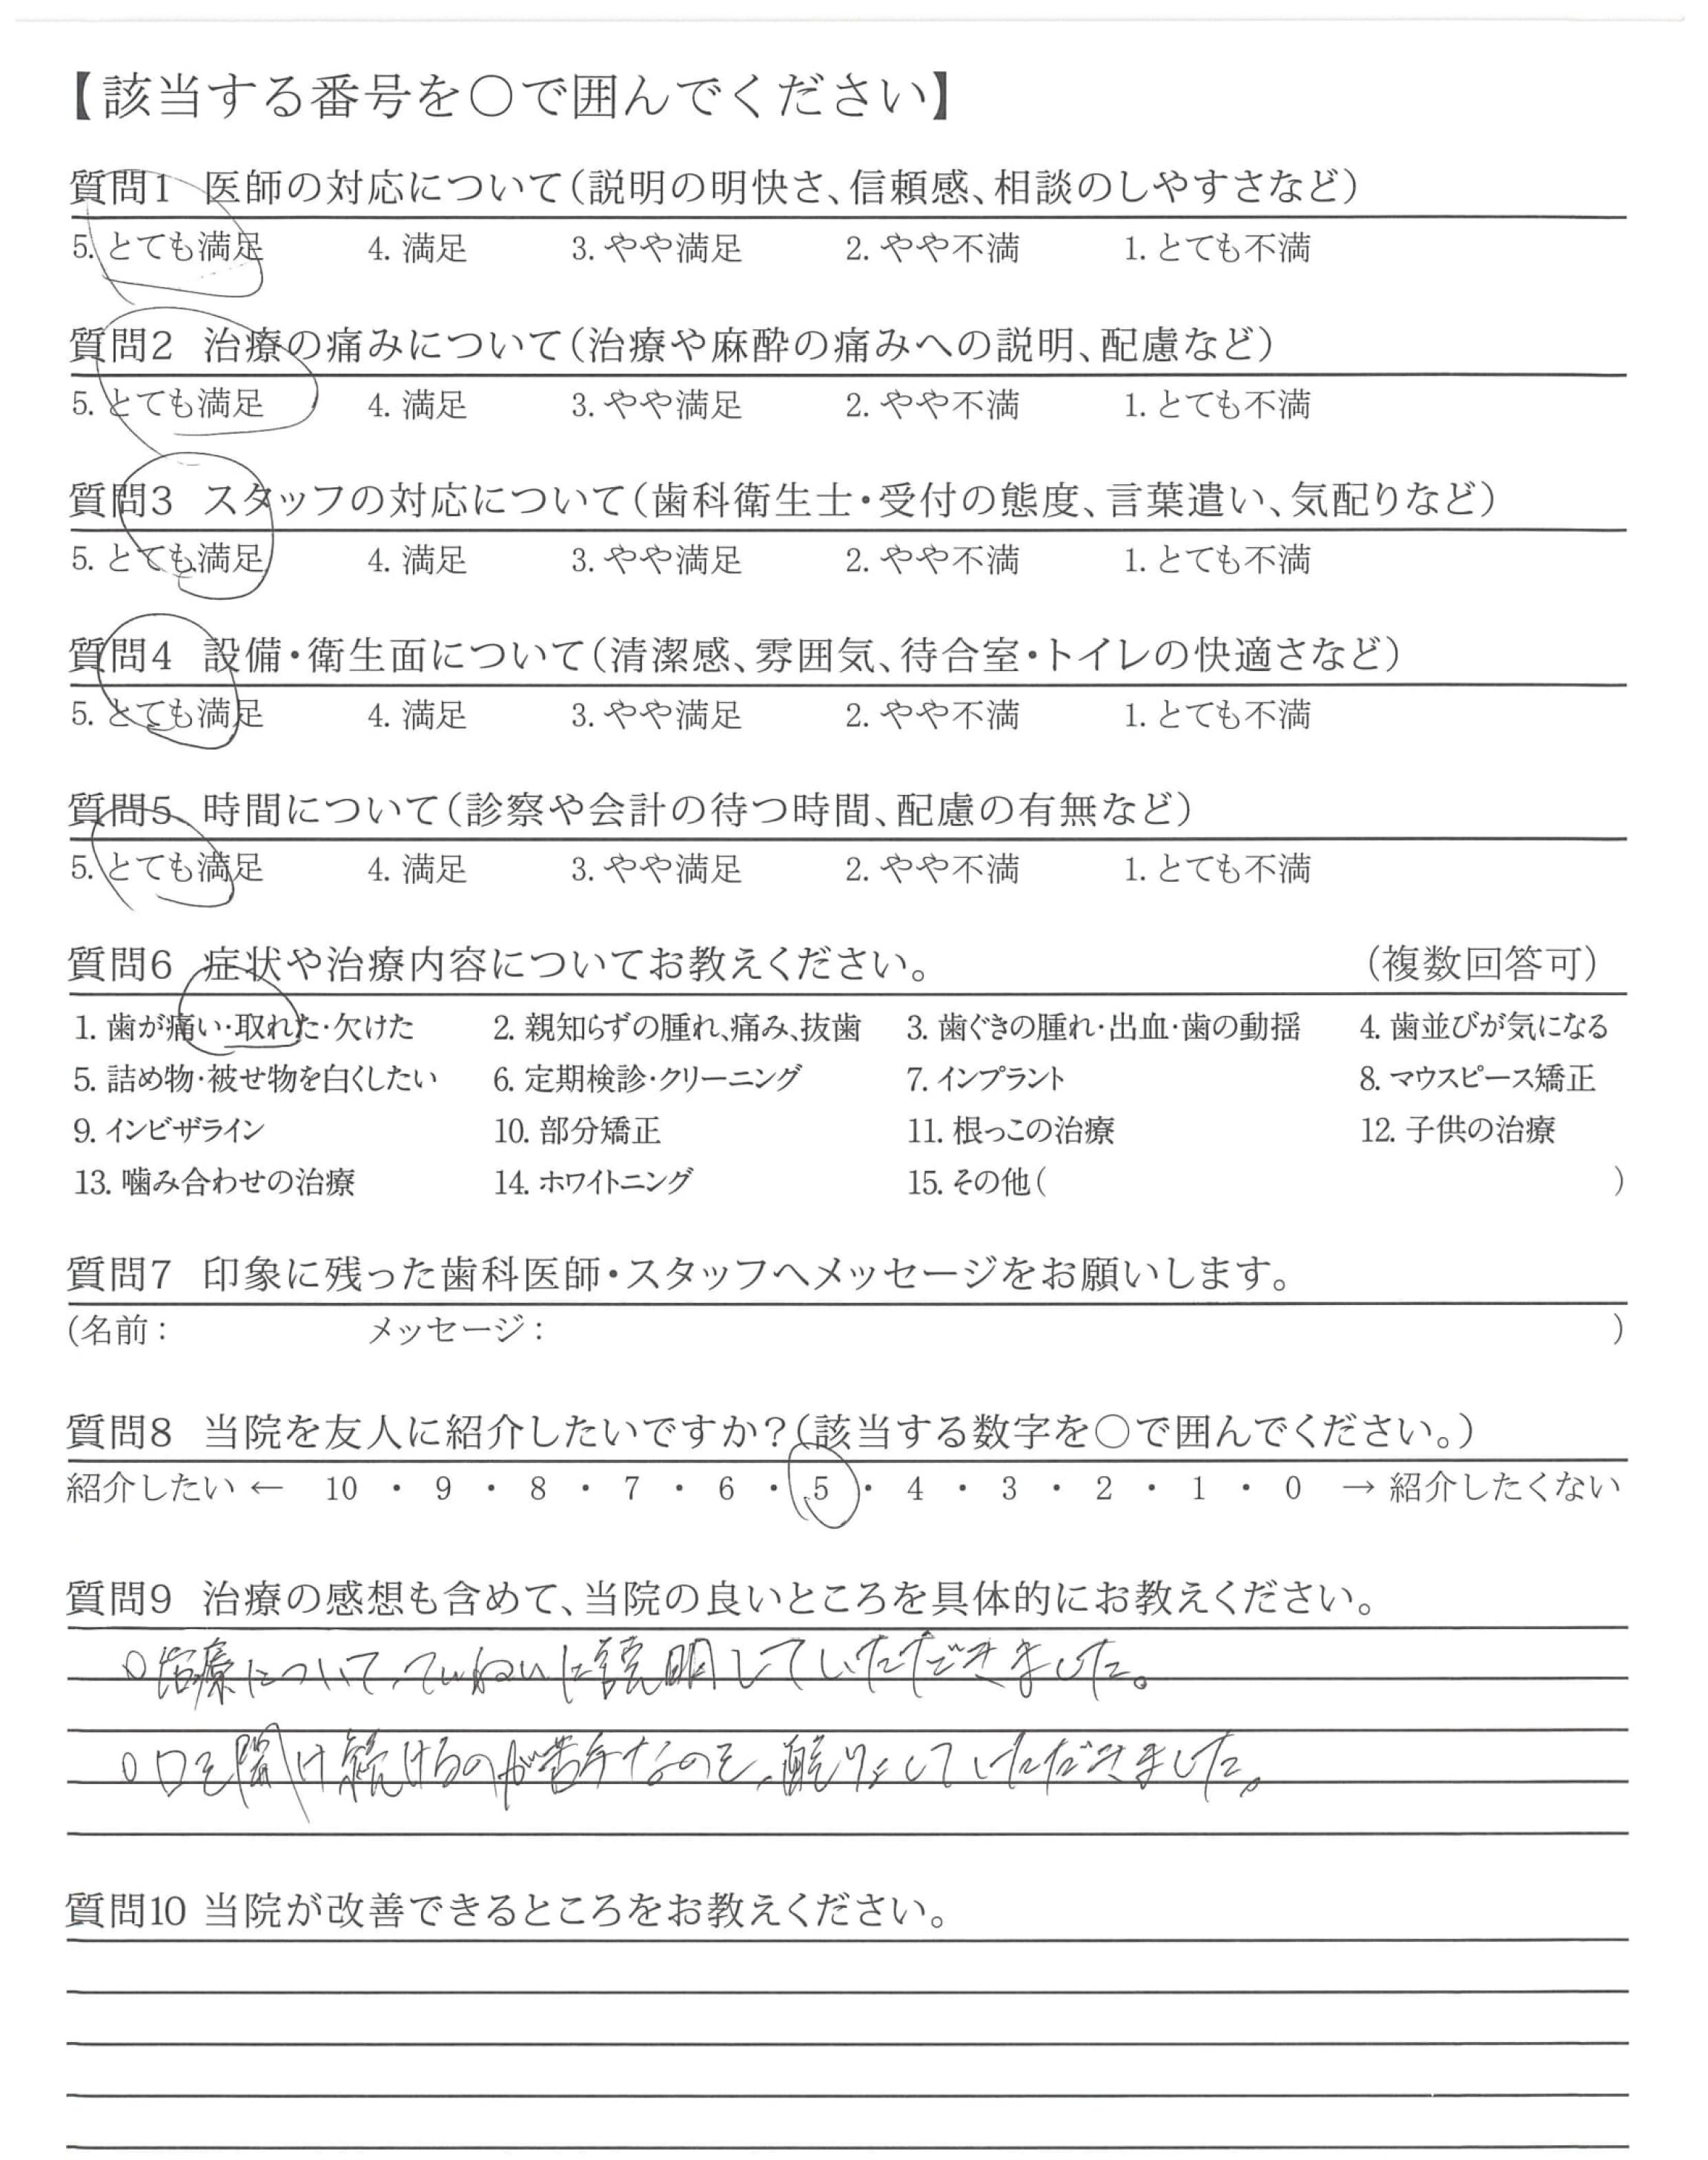 【該当する番号を○で囲んでください】
質問1 医師の対応について(説明の明快さ、信頼感、相談のしやすさなど)
5. とても満足 4. 満足 3. やや満足 2. やや不満 1. とても不満
質問2 治療の痛みについて(治療や麻酔の痛みへの説明、配慮など)
5. とても満足 4. 満足 3. やや満足 2. やや不満 1. とても不満
質問3 スタッフの対応について(歯科衛生士・受付の態度、言葉遣い、気配りなど)
5. とても満足 4. 満足 3. やや満足 2. やや不満 1. とても不満
質問4 設備・衛生面について(清潔感、雰囲気、待合室・トイレの快適さなど)
5. とても満足 4. 満足 3. やや満足 2. やや不満 1. とても不満
質問5 時間について(診察や会計の待つ時間、配慮の有無など)
5. とても満足 4. 満足 3. やや満足 2. やや不満 1. とても不満
質問6 症状や治療内容についてお教えください。 (複数回答可)
1. 歯が痛い・取れた・欠けた 2. 親知らずの腫れ、痛み、抜歯 3. 歯ぐきの腫れ・出血・歯の動揺 4. 歯並びが気になる
5. 詰め物・被せ物を白くしたい 6. 定期検診・クリーニング 7. インプラント 8. マウスピース矯正
9. インビザライン 10. 部分矯正 11. 根っこの治療 12. 子供の治療
13. 噛み合わせの治療 14. ホワイトニング 15. その他( )
質問7 印象に残った歯科医師・スタッフへメッセージをお願いします。
(名前: メッセージ: )
質問8 当院を友人に紹介したいですか?(該当する数字を○で囲んでください。)
紹介したい ← 10 ・ 9 ・ 8 ・ 7 ・ 6 ・ 5 ・ 4 ・ 3 ・ 2 ・ 1 ・ 0 → 紹介したくない
質問9 治療の感想も含めて、当院の良いところを具体的にお教えください。
○治療について、ていねいに説明していただきました。
○口を開け続けるのが苦手なのを、していただきました。
質問10 当院が改善できるところをお教えください。